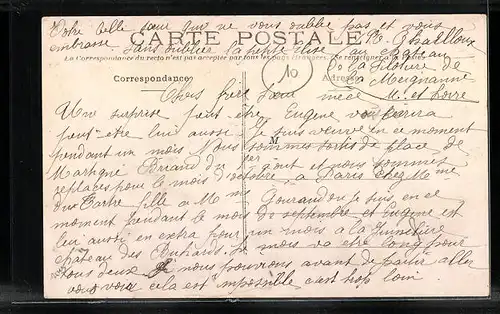 Votre belle sœur qui ne vous oublie pas et vous
embrasse. Sans oublier la petite
CARTE POSTALE
La Correspondance du recto n'est pas acceptée par tous les pays étrangers. (Se renseigner à la Poste).
Correspondance
Adresse
au château
de la
la Meignanne
M. et Loire
10
M
Chers frère Sœur nièce
Une surprise peut être Eugène vous
peut-être lui aussi Je suis en ce moment
pendant un mois Nous sommes sortis de place de
Martigné Briand du 1er août et nous sommes
replacés pour le mois d'octobre a Paris chez Mme
du Tertre fille a Mme je suis en ce
moment pendant le mois de septembre et Eugène est
lui aussi en extra pour un mois a la
château des Le mois va être long pour
tous deux nous pouvions avant de partir aller
vous voir cela est impossible c'est trop loin.